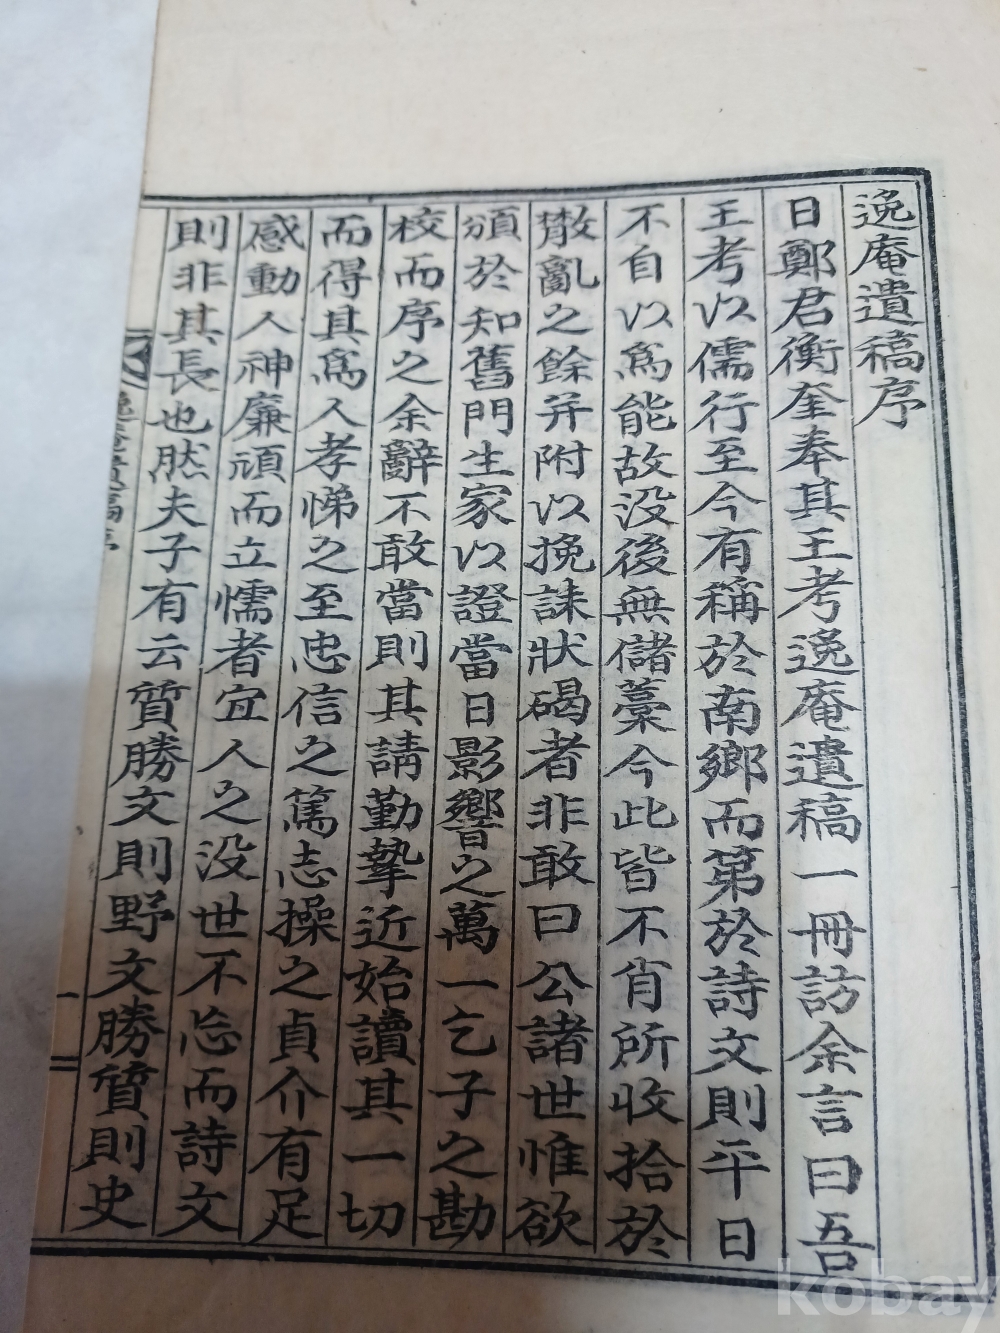 逸庵遺稿序
日鄭君衡奎奉其王考逸庵遺稿一冊訪余言曰吾
王考以儒行至今有稱於南鄉而第於詩文則平日
不自以爲能故没後無儲藁今此皆不肯所收拾於
散亂之餘并附以挽誄狀碣者非敢曰公諸世惟欲
頒於知舊門生家以證當日影響之萬一乞子之勘
校而序之余辭不敢當則其請勤摯近始讀其一切
而得其爲人孝悌之至忠信之篤志操之貞介有足
感動人神廉頑而立懦者宜人之没世不忘而詩文
則非其長也然夫子有云質勝文則野文勝質則史
逸庵遺稿序
一
kobay